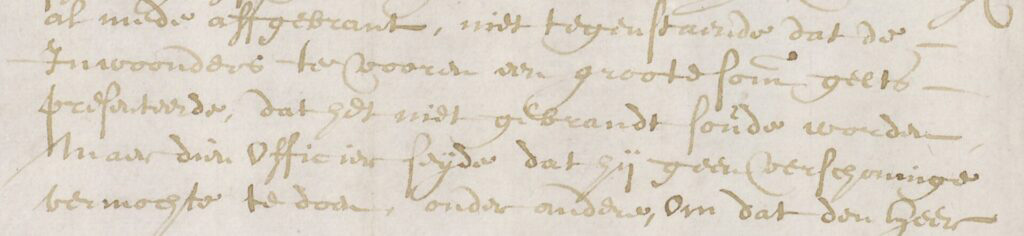 al mede affgebrant, niet tegenstaende dat de
Inwoonders te vooren een groote som̅ gelts
presenteerde, dat het niet gebrandt soude worden
Maer dien Officier seyde dat hij geen verschoninge
vermochte te doen, onder andere, Om dat den Heer